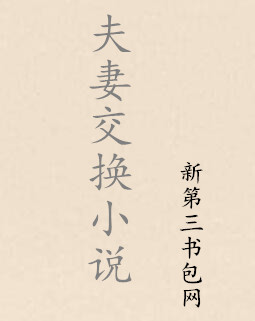 夫妻交换小说
新第三书包网